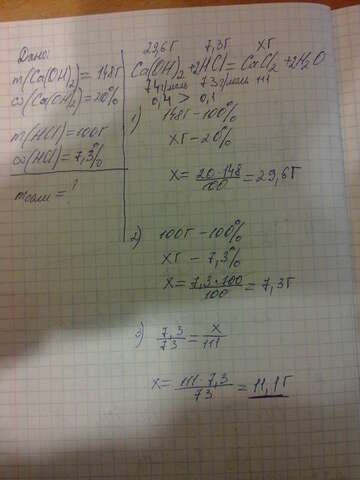 Дано:
m(Ca(OH)₂) = 148г
ω(Ca(OH)₂) = 20%
m(HCl) = 100г
ω(HCl) = 7,3%
mсоли = ?
29,6г 7,3г xг
Ca(OH)₂ + 2HCl = CaCl₂ + 2H₂O
74г/моль 73г/моль 111
0,4 > 0,1
1) 148г - 100%
xг - 20%
x = 20·148/100 = 29,6г
2) 100г - 100%
xг - 7,3%
x = 7,3·100/100 = 7,3г
3) 7,3/73 = x/111
x = 111·7,3/73 = 11,1г